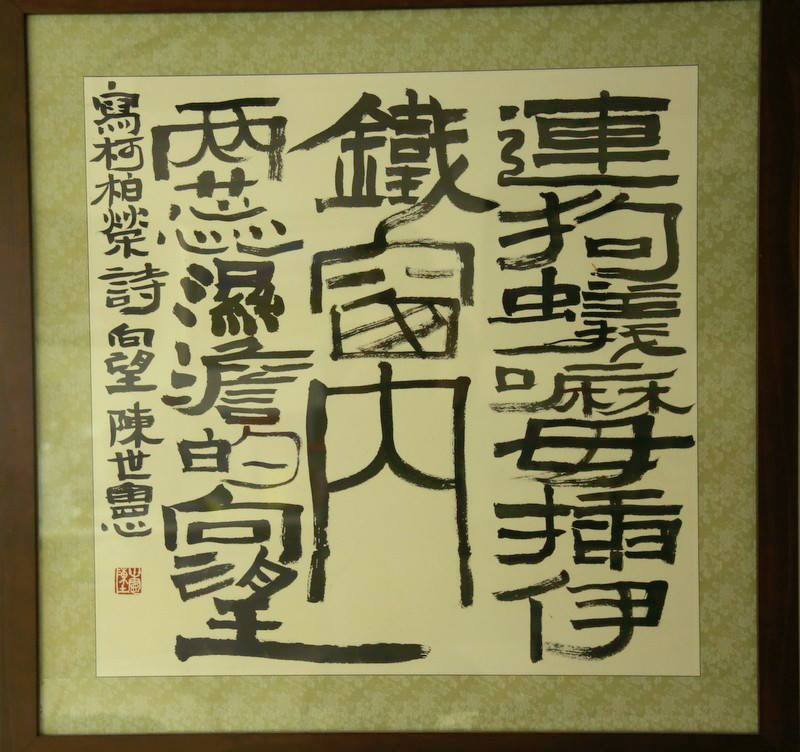 連狗蟻嘛毋插伊
鐵窗內
兩蕊濕澹的向望
寫柯柏榮詩向望 陳世憲